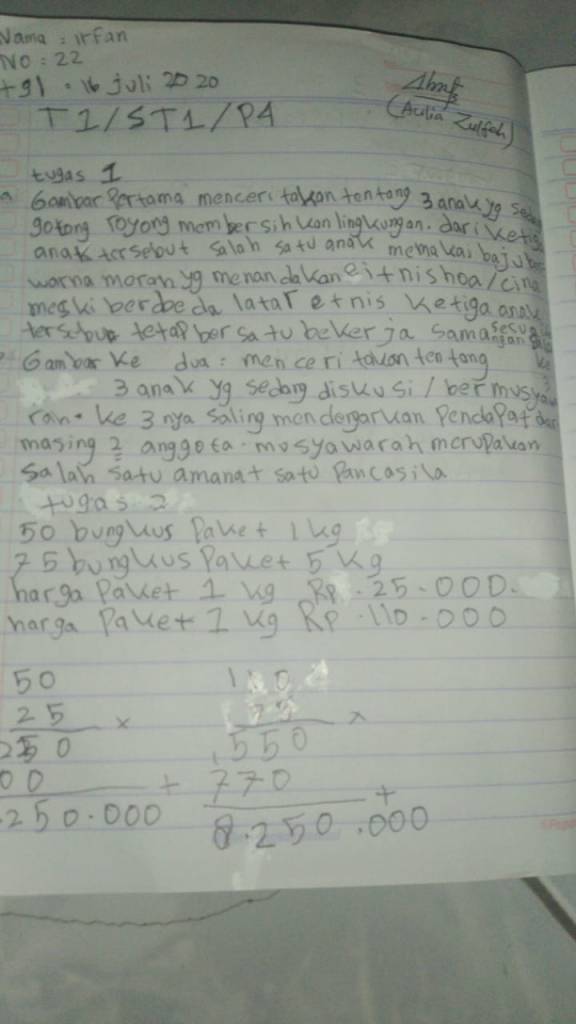 Nama : irfan
NO : 22
+gl . 16 juli 2020
(Aulia Zulfah)
T1/ST1/P4
tugas I
Gambar Pertama menceritakan tentang 3 anak yg
gotong royong membersihkan lingkungan. dari
anak tersebut salah satu anak memakai
warna merah yg menandakan eitnishoa/cina
meski berbeda latar etnis ketiga anak
tersebut tetap bersatu bekerja sama
Gambar ke dua : menceritakan tentang
3 anak yg sedang diskusi / bermusya
ran. ke 3 nya saling mendengarkan Pendapat dari
masing 2 anggota. musyawarah merupakan
Salah satu amanat satu Pancasila
tugas 2
50 bungkus Paket 1 kg
75 bungkus Paket 5 Kg
harga Paket 1 kg Rp . 25.000.
harga Paket 1 kg Rp .110.000
50
25 ×
250
00 +
.250.000
110
75 ×
550
770 +
8.250.000